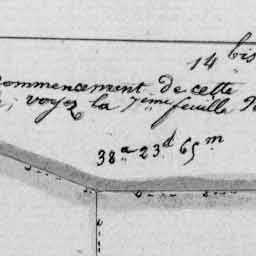 14 bis
commencement de cette
, voyez la 7ème feuille
38a 23d 65m